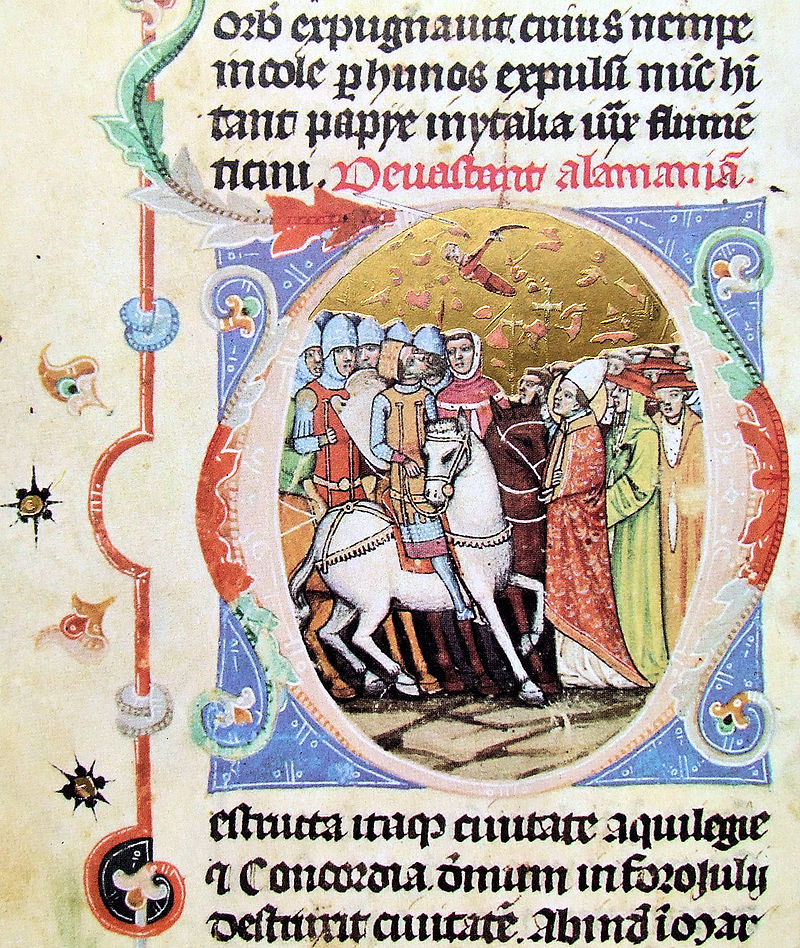 orb̄ expugnauit. cuius nempe
incole ꝑ hunos expulsi nūc hī
tant papye in ytalia iux̄ flumē
ticini. Deuastant alamaniā.
estructa itaqꝫ ciuitate aquilegie
⁊ Concordia. ōmum in foroJulij
destruxit ciuitatē. Ab ind̄ ī Mar